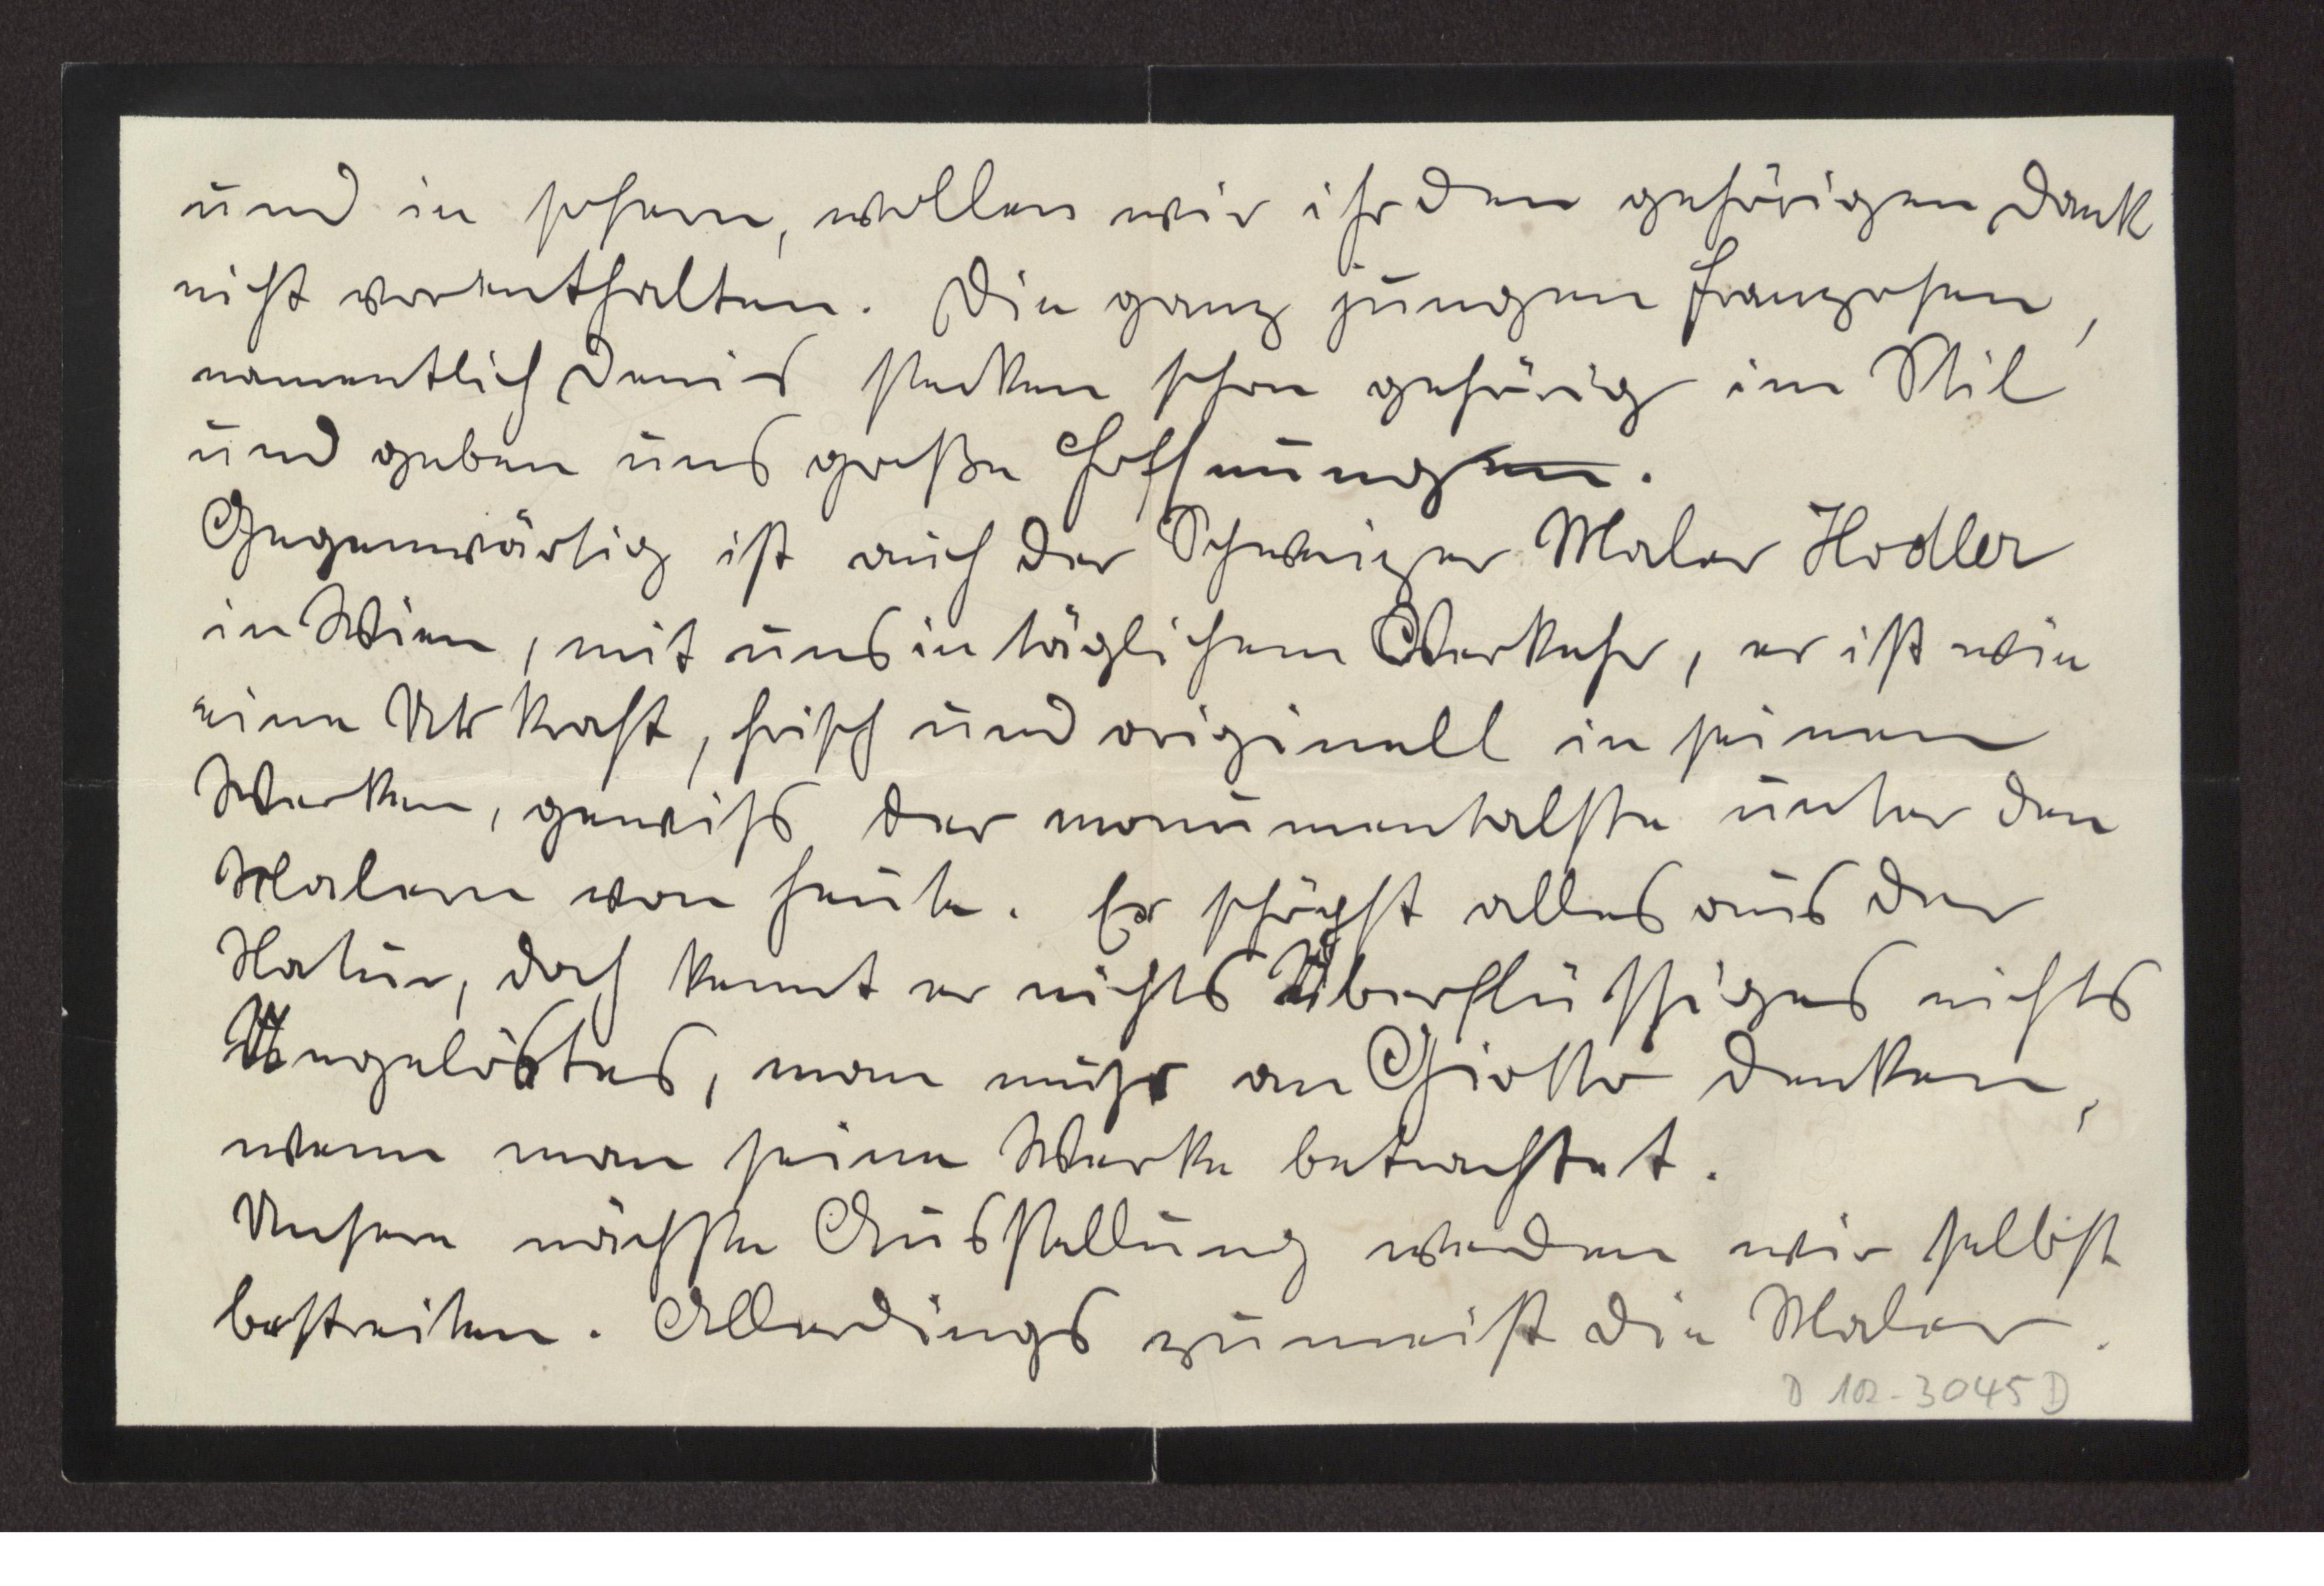 und in sofern, wollen wir ihr den gehörigen Dank
nicht vorenthalten. Die ganz jungen Franzosen,
namentlich Denis stecken schon gehörig im Stil
und geben uns große Hoffnungen.
Gegenwärtig ist auch der Schweizer Maler Hodler
in Wien, mit uns in täglichem Verkehr, er ist wie
eine Urkraft, frisch und originell in seinen
Werken, gewiss der monumentalste unter den
Malern von heute. Er schöpft alles aus der
Natur, doch kennt er nichts Überflüssiges nichts
Ungelöstes, man muss an Giotto denken,
wenn man seine Werke betrachtet.
Unsere nächste Ausstellung werden wir selbst
bestreiten. Allerdings zumeist die Maler.
D 102-3045 D